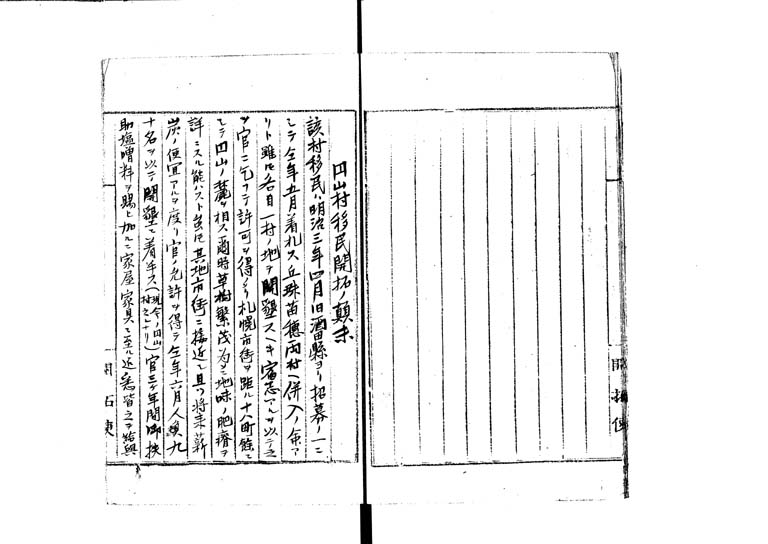 円山村移民開拓ノ顛末
該村移民ハ明治三年四月旧酒田縣ヨリ招募ノ一ニ
シテ仝年五月着札ス丘珠苗穂両村ヘ併入ノ命ア
リト雖ﾓ各自一村ノ地ヲ開墾スヘキ宿志アルヲ以テ之
ヲ官ニ乞フテ許可ヲ得タリ札幌市街ヲ距ル十八町餘ニ
シテ円山ノ麓ヲ相ス爾時草樹繁茂為メニ地味ノ肥瘠ヲ
詳ニスル能ハスト虽ﾓ其地市街ニ接近シ且ツ将来薪
炭ノ便宜アルヲ度リ官ノ允許ヲ得テ仝年六月人員九
十名ヲ以テ開墾ニ着手ス(現今ノ円山村之レナリ)官三ケ年間御扶
助塩噌料ヲ賜ヒ加ルニ家屋家具ニ至ル迄悉皆之ヲ給與
開拓使
開拓使